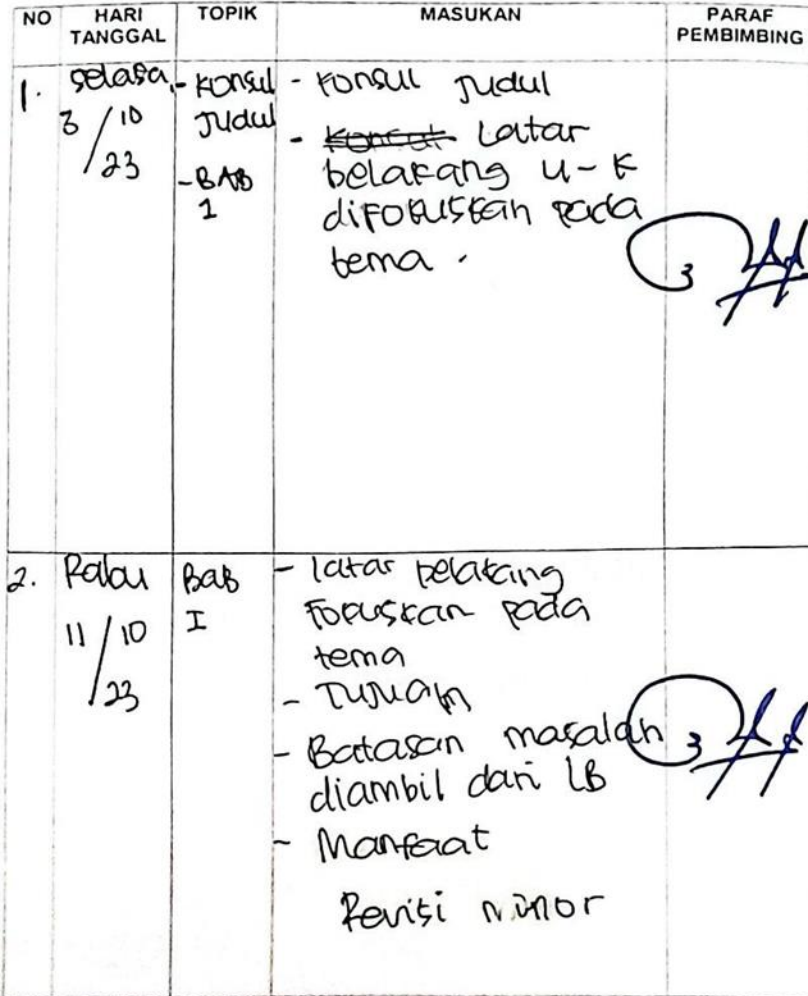 NO HARI TANGGAL TOPIK MASUKAN PARAF PEMBIMBING
1. Selasa, - Konsul - Konsul Judul
3/10/23 Judul - Latar
- BAB 1 belakang U-K
difokuskan pada
tema.
2. Rabu Bab - latar belakang
11/10/23 I Fokuskan pada
tema
- Tujuan
- Batasan masalah
diambil dari LB
- Manfaat
Revisi minor